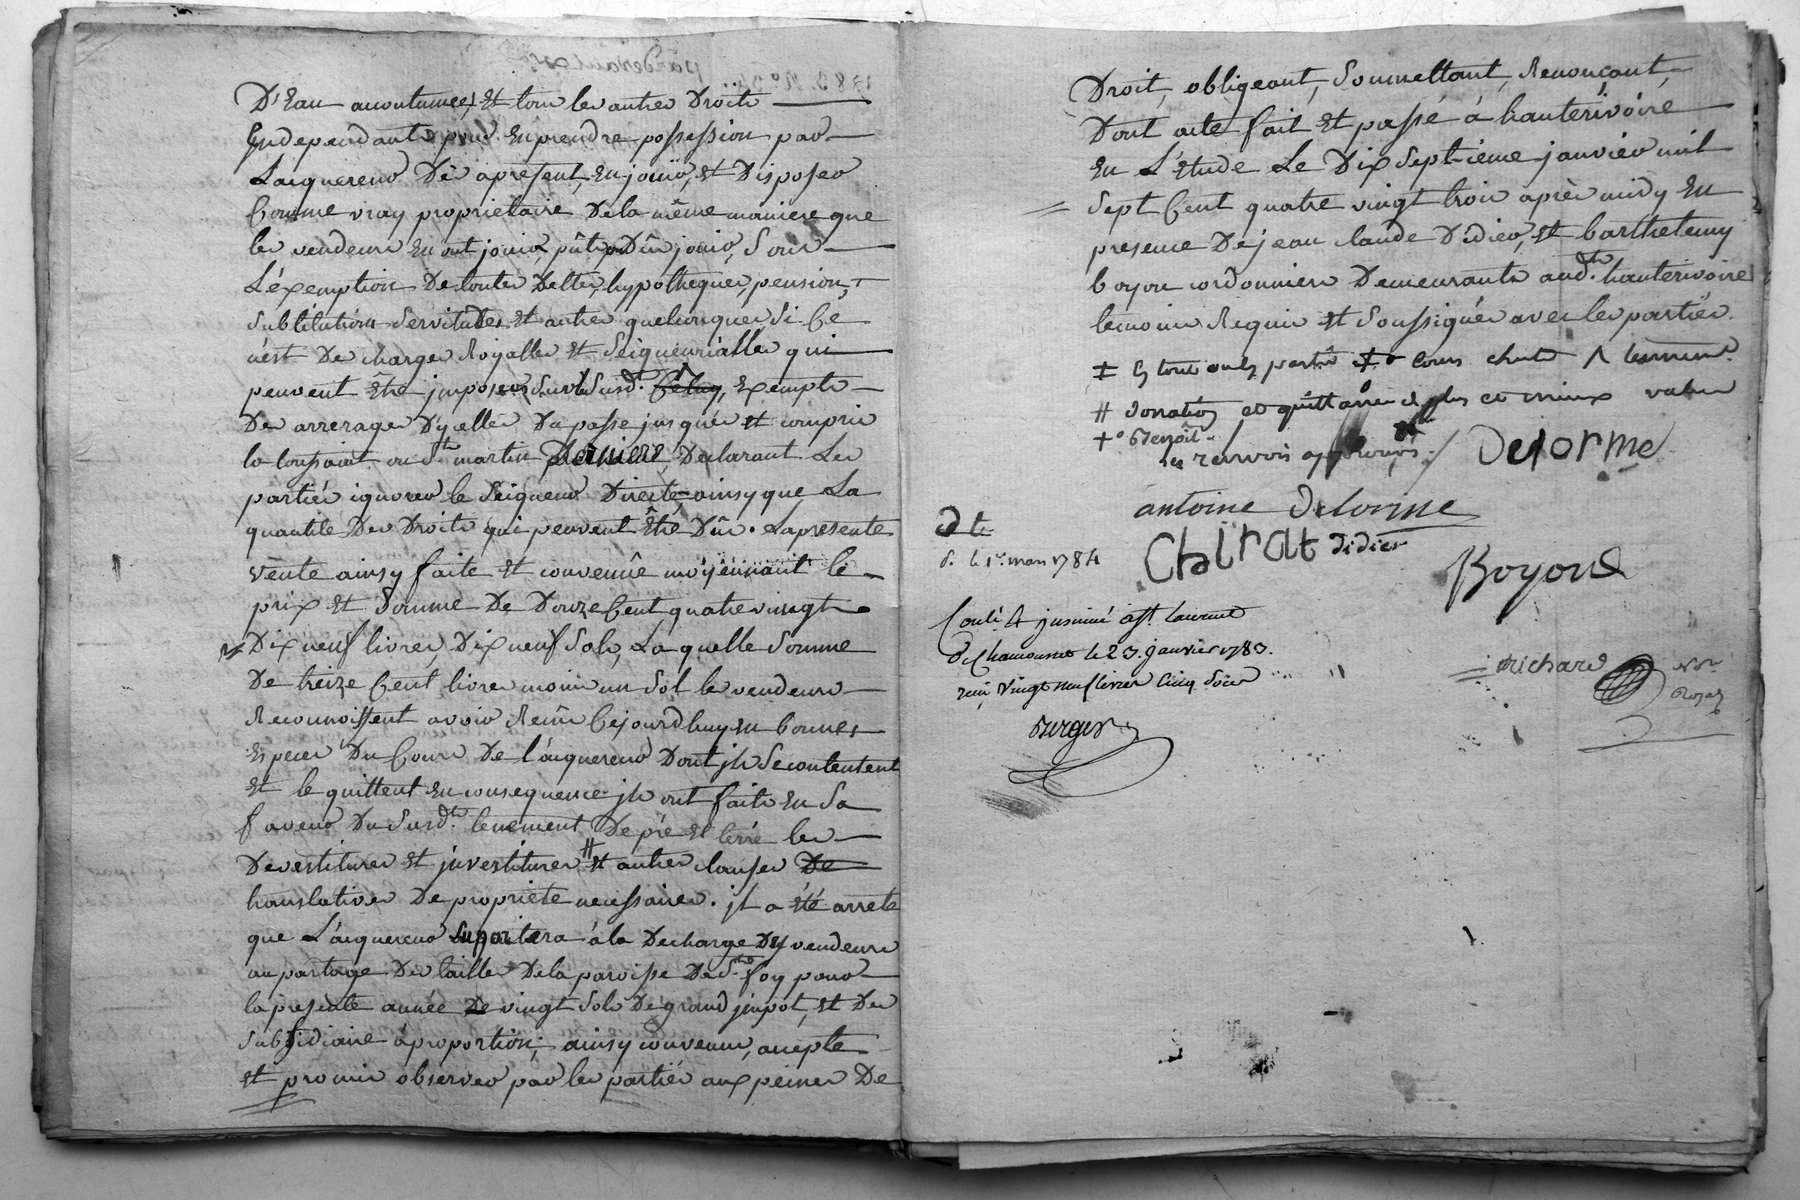 D'Eau accoutumée, Et tous les autres Droits
Independants pour En prendre possession par
L'acquereur Dès apresent, En jouir, et Disposer
Comme vray proprietaire Dela même maniere que
les vendeurs En ont jouir, pû ou Dû jouir, Sous
L'éxemption De toutes Delles, hypotheques, pension,
Substitution Servitudes Et autres quelconques Si Ce
n'est De charges Royalles Et Seigneurialles qui
peuvent Être imposées Sur le Susd. Exempts
Des arrerages D'ycelles Du passé jusques Et compris
la toussaint ou St martin Derniere, Declarant Les
partiés ignorer le Seigneur Directe ainsy que La
quantité Des Droits qui peuvent Être Dûs. La presente
vente ainsy faite Et convenuê moyennant le
prix Et Somme De Douze Cent quatre vingt
Dix neuf livres, Dix neuf Sols, La quelle Somme
De treize Cent livres moins un Sol les vendeurs
Reconnoissent avoir Reçûe Cejourdhuy en bonnes
Especes Du Cours De l'acquereur Dont jls Se contentent
Et le quittent En consequence jls ont faits En Sa
faveur Du Susdt. tenement De pré Et terre les
Devestitures Et jnvestitures # Et autres clauses De
translatives De proprieté necessaires. jl a été arreté
que L'acquereur Suportera á la Decharge Des vendeurs
au partage Des tailles Dela paroisse De Ste foy pour
la presente année De vingt Sols De grand jmpot, Et Des
Subsidiaire á proportion; ainsy convenu, accepté
Et promis observer par les partiés aux peines De
Droit, obligeant, Soumettant, Renonçant,
Dont acte fait Et passé á hauterivoire
En L'étude Le Dix Septieme janvier mil
Sept Cent quatre vingt trois après midy En
presence De jean claude Didier, Et barthelemy
boyon cordonniers Demeurants audt. hauterivoire
temoins Requis Et Soussignés avec les partiés.
# donation et quittance de plus et mieux valeur
+° Benoît
les renvois approuvés
Delorme
antoine delorme
Chirat didier
Boyon
d. le 1er mars 1784
Conté 4 jnsinué á St. Laurent
de Chamousset le 23. janvier 1783.
reçu Vingt neuf livres Cinq Sols
Berger
Richard
Nre
Royal